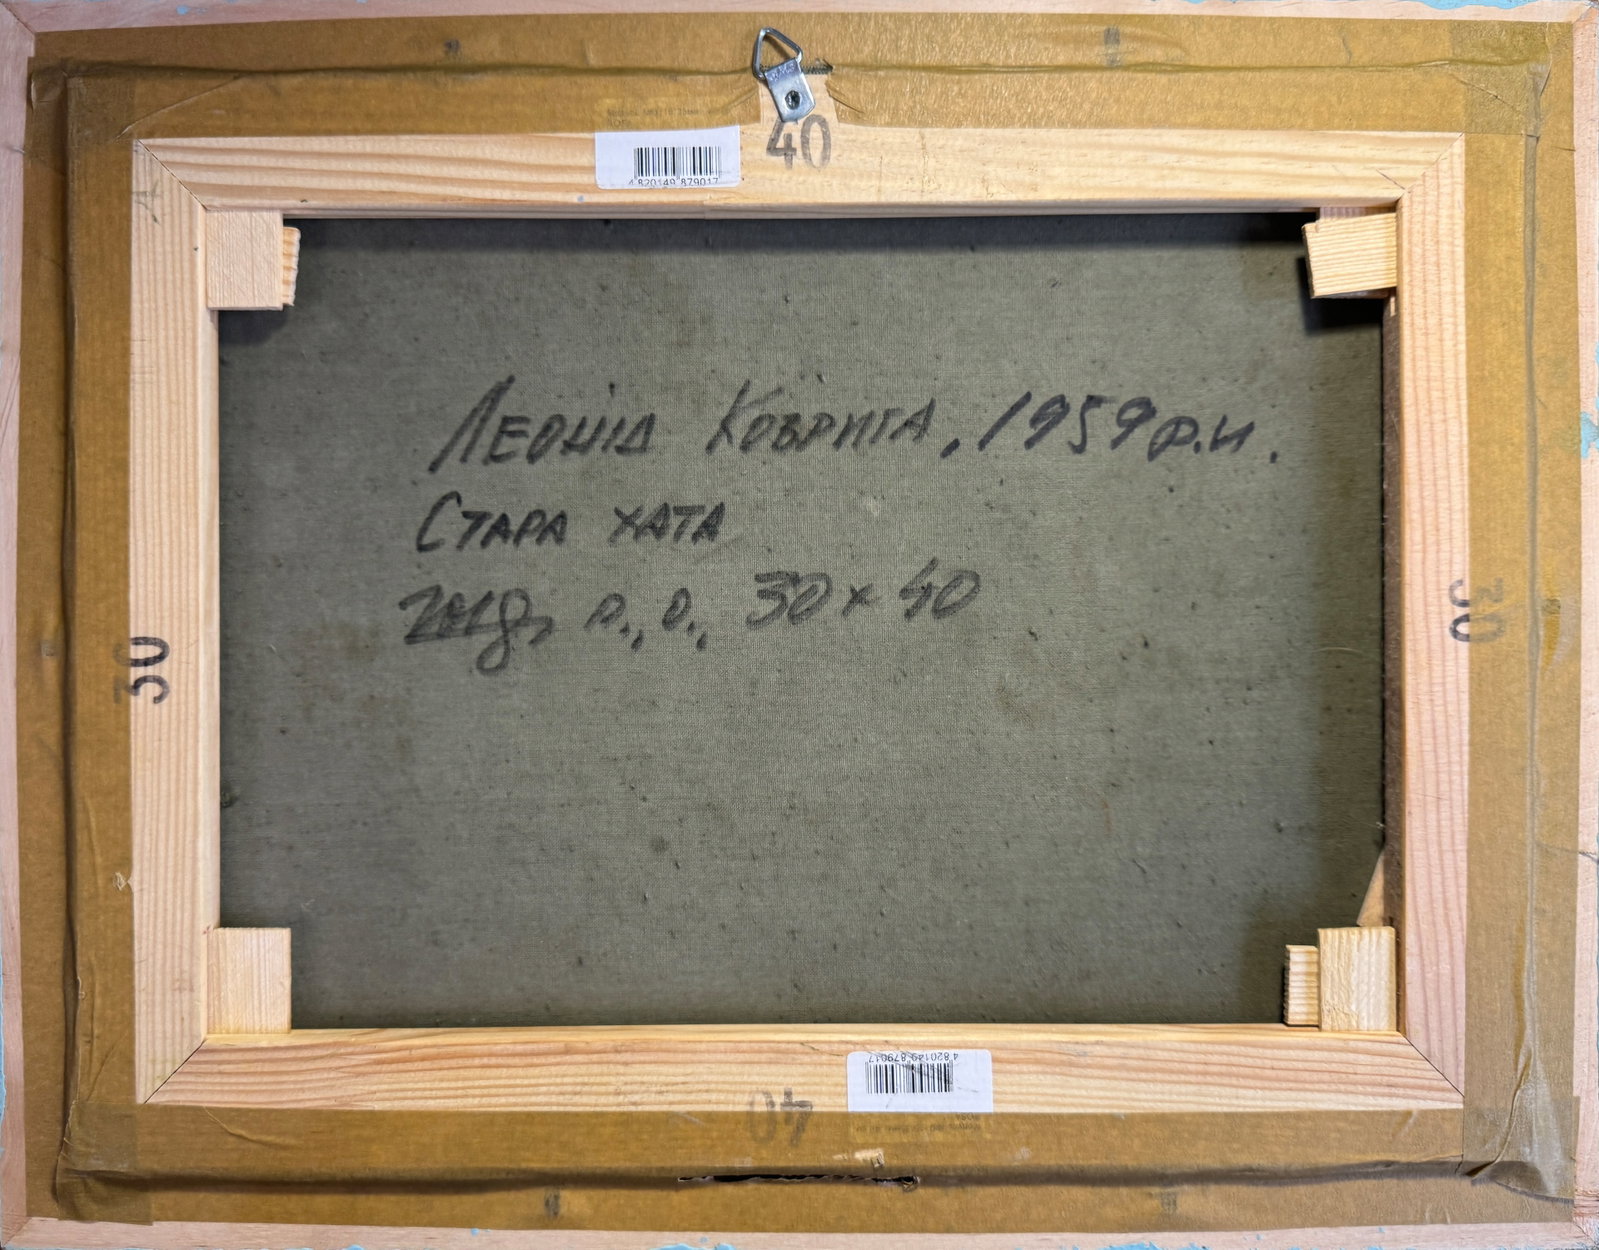 40
4 820149 879017
Леонід Коврига, 1959 р.н.
Стара хата
п., о., 30х40
30
30
4 820149 879017
40